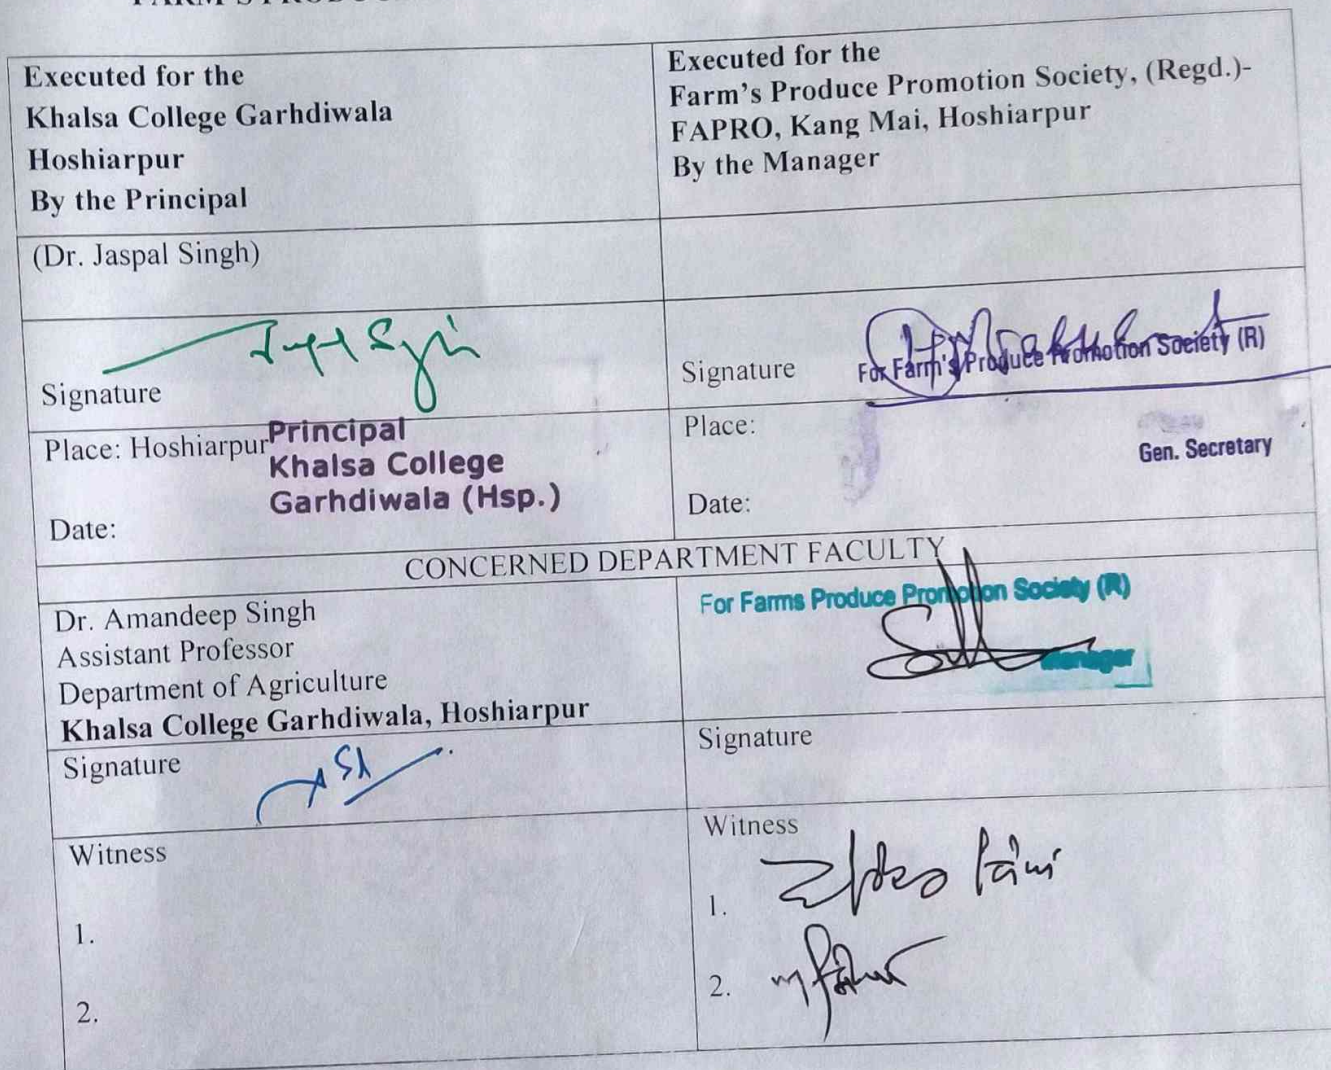 Executed for the
Khalsa College Garhdiwala
Hoshiarpur
By the Principal
Executed for the
Farm's Produce Promotion Society, (Regd.)-
FAPRO, Kang Mai, Hoshiarpur
By the Manager
(Dr. Jaspal Singh)
Signature
Signature
For Farm's Produce Promotion Society (R)
Place: Hoshiarpur
Principal
Khalsa College
Garhdiwala (Hsp.)
Date:
Place:
Gen. Secretary
Date:
CONCERNED DEPARTMENT FACULTY
Dr. Amandeep Singh
Assistant Professor
Department of Agriculture
Khalsa College Garhdiwala, Hoshiarpur
For Farms Produce Promotion Society (R)
Manager
Signature
Signature
Witness
1.
2.
Witness
1.
2.